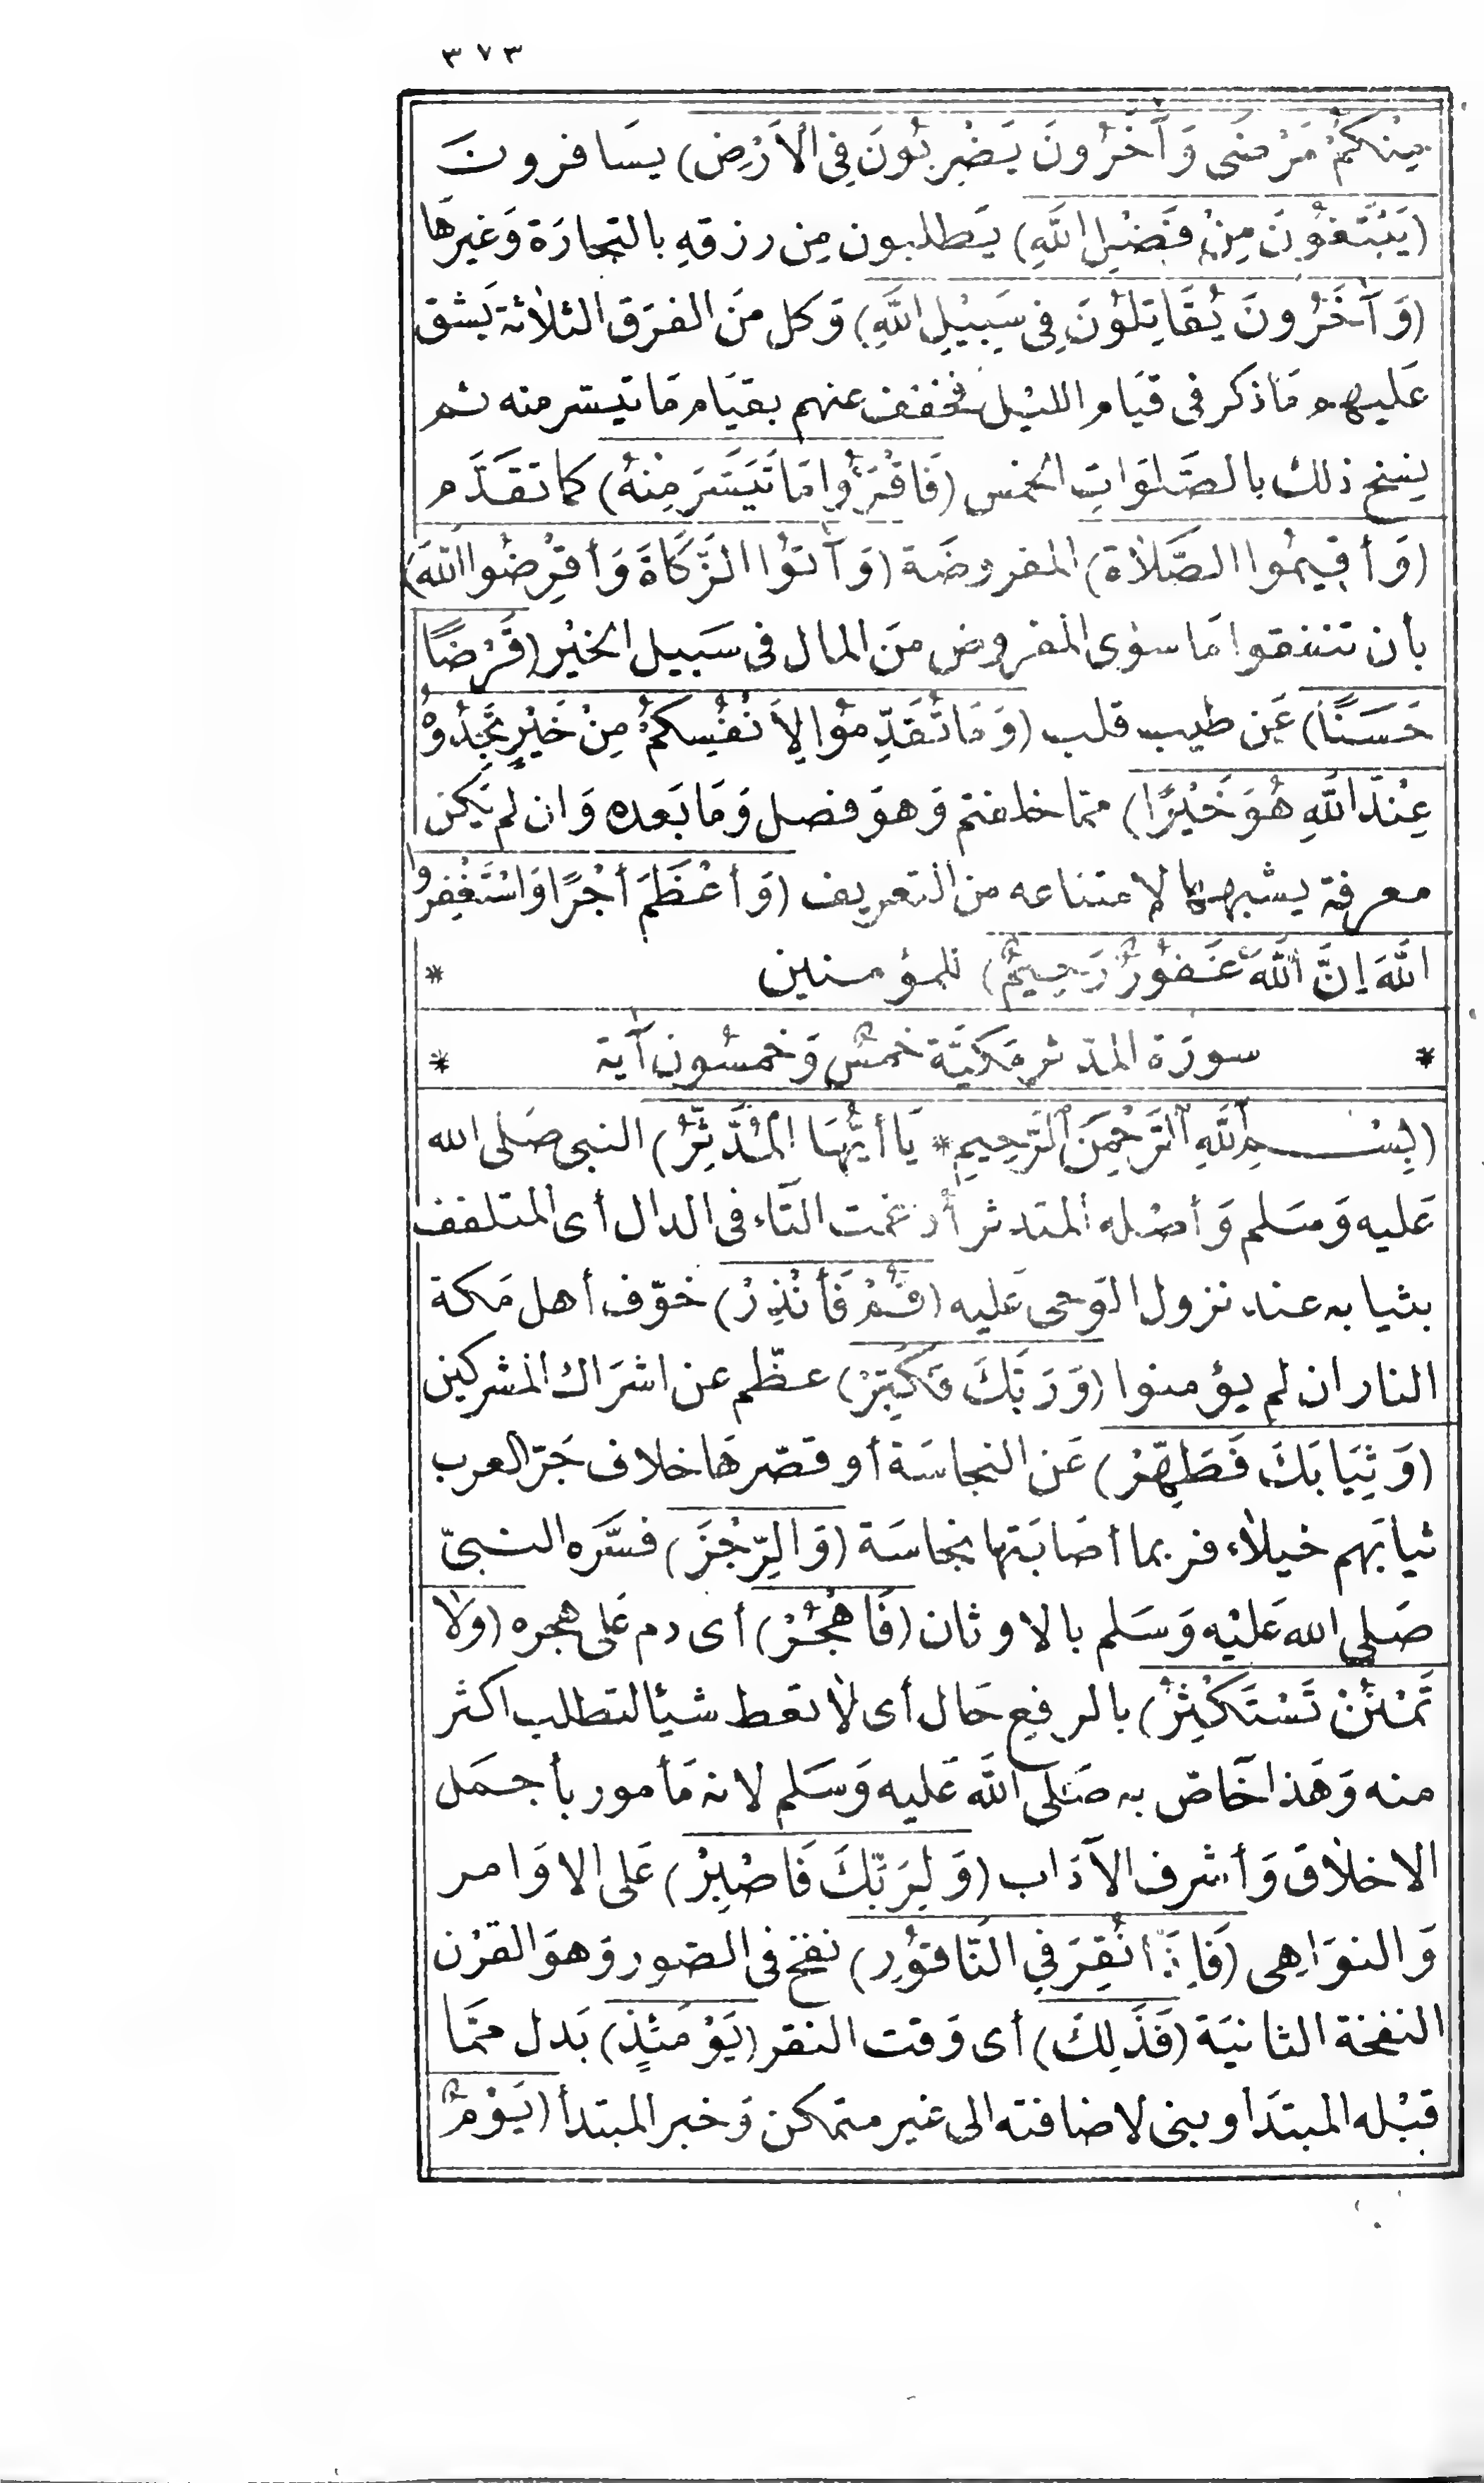 ٣٧٣
مِنْكُمْ مَرْضَى وَآخَرُونَ يَضْرِبُونَ فِي الْأَرْضِ) يسَافرونَ
(يَبْتَغُونَ مِنْ فَضْلِ اللَّهِ) يَطلبون مِن رزقهِ بالتجارَة وَغيرهَا
(وَآخَرُونَ يُقَاتِلُونَ فِي سَبِيْلِ اللَّهِ) وَكل منَ الفرَق الثلاثة يَشق
عَليهم مَا ذكر فى قيَام الليْل فخفف عنهم بقيَام مَا تيَسّر منه ثم
ينسخ ذلك بالصَّلوَاتِ الخمس (فَاقْرَؤُا مَا تَيَسَّرَ مِنْهُ) كما تقَدَّم
(وَأقِيمُوا الصَّلَاةَ) المفروضَة (وَآتُوا الزَّكَاةَ وَأقْرِضُوا اللهَ)
بأن تنفقوا مَا سوى المفروض منَ المال فى سَبيل الخيْر (قَرْضًا
حَسَنًا) عَن طيب قلب (وَمَا تُقَدِّمُوا لِأَنْفُسِكُمْ مِنْ خَيْرٍ تَجِدُوْهُ
عِنْدَ اللَّهِ هُوَ خَيْرًا) ممّا خلفتم وَهوَ فصل وَمَا بَعده وَان لم يَكن
معرفة يشبههَا لامتناعه من التعريف (وَأعْظَمَ أجْرًا وَاسْتَغْفِرُوا
اللَّهَ إنَّ اللَّهَ غَفُوْرٌ رَحِيمٌ) للمؤمنين *
* سورَة المدّثر مَكيَّة خمسٌ وَخمسُون آيَة *
(بِسْمِ اللَّهِ الرَّحْمَنِ الرَّحِيمِ * يَا أيُّهَا الْمُدَّثِّرُ) النبى صَلى الله
عَليه وَسَلم وَأصْله المتدثر أدغمت التَّاء فى الدال أى المتلفف
بثيابه عند نزول الوَحى عَليه (قُمْ فَأنْذِرْ) خوّف أهل مَكة
النار ان لم يؤمنوا (وَرَبَّكَ فَكَبِّرْ) عظّم عن اشرَاك المشركين
(وَثِيَابَكَ فَطَهِّرْ) عَن النجاسَة أو قصّرهَا خلاف جَرّ العرب
ثيابَهم خيلاء فربما أصَابَتها نجاسَة (وَالرِّجْزَ) فسَّرَه النبىّ
صَلى الله عَليْه وَسَلم بالاوثان (فَاهْجُرْ) أى دم عَلى هجره (وَلَا
تَمْنُنْ تَسْتَكْثِرُ) بالرفع حَال أى لَا تعط شيئا لتطلب اكثر
منه وَهَذا خَاصّ به صَلى اللَّه عَليه وَسَلم لانه مَأمور بأجمَل
الاخلاَق وَأشرف الآدَاب (وَلِرَبِّكَ فَاصْبِرْ) عَلى الاوَامر
وَالنوَاهِى (فَإِذَا نُقِرَ فِي النَّاقُوْرِ) نفخ فى الصّور وَهوَ القرْن
النفخة الثانيَة (فَذَلِكَ) أى وَقت النقر (يَوْمَئِذٍ) بَدل ممَّا
قبْله المبتدَأ وبنى لاضافته الى غير متمكن وَخبر المبتدأ (يَوْمٌ